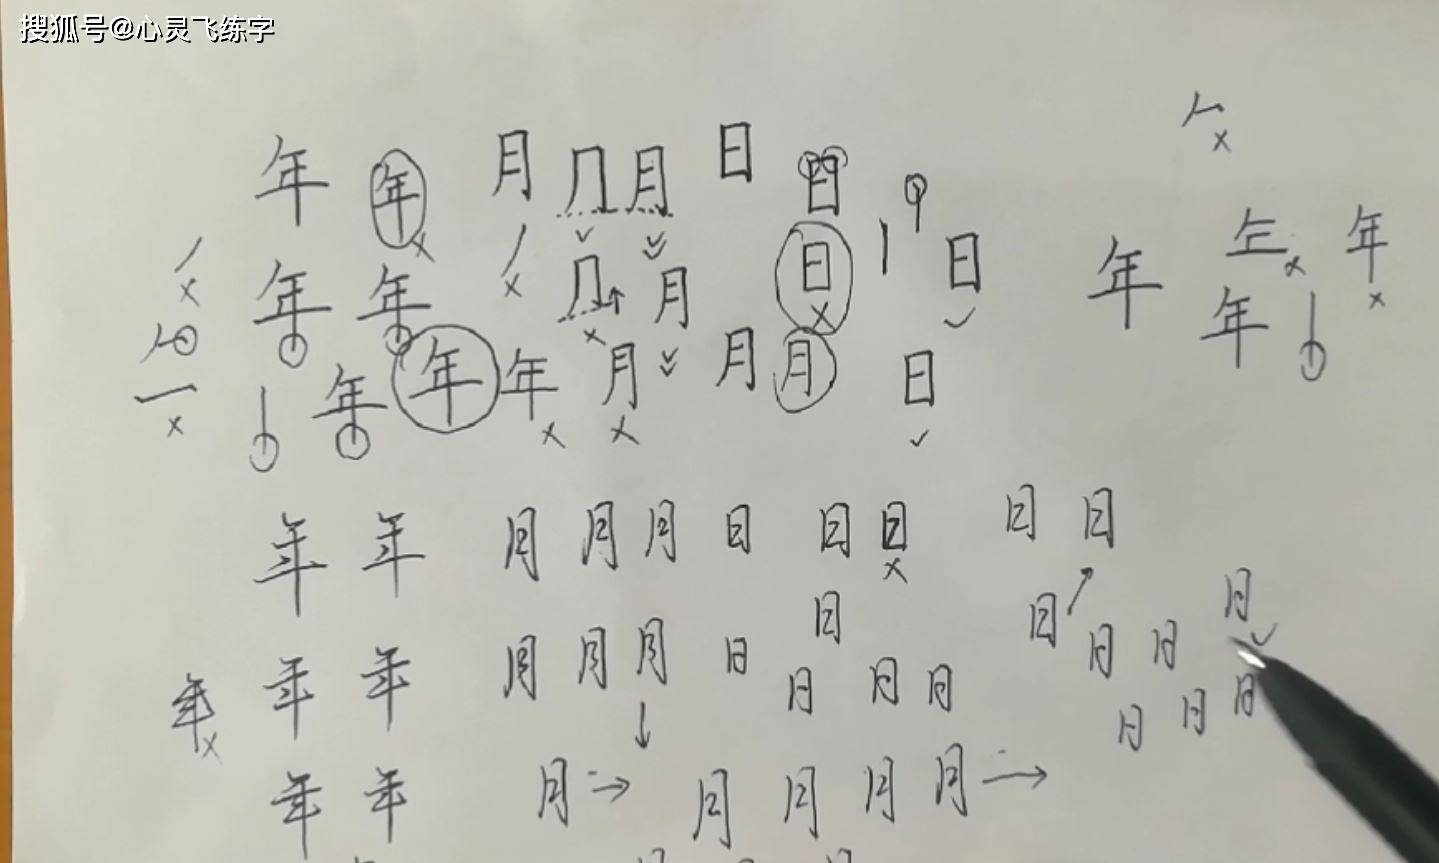 搜狐号@心灵飞练字
年 年 月 月 日 日
年 年 月 日 日 年 年 年
年 年 年 月 月 月 日
年 年 月 月 月 日 日 日 日 日
日 日 月
年 年 年 月 月 月 日 日 日 日 日 日
日 日 日
年 年 月 月 月 月 月